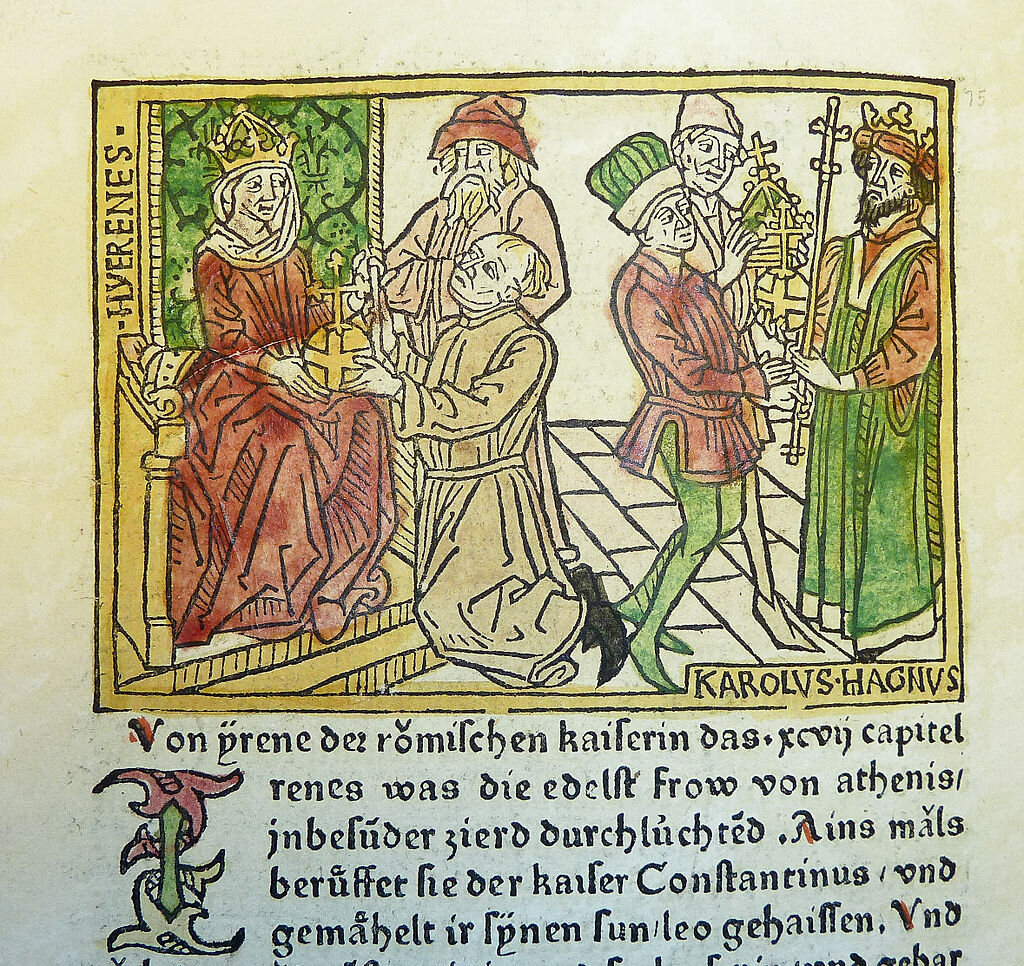 ·HVERENES·
KAROLVS·HAGNVS
75
Von ÿrene der rőmischen kaiserin das·xcvij capitel
Irenes was die edelst frow von athenis/
jnbesũder zierd durchlúchtẽd. Ains mǎls
berűffet sie der kaiser Constantinus / vnd
gemåhelt ir sÿnen sun/leo gehaissen. Vnd